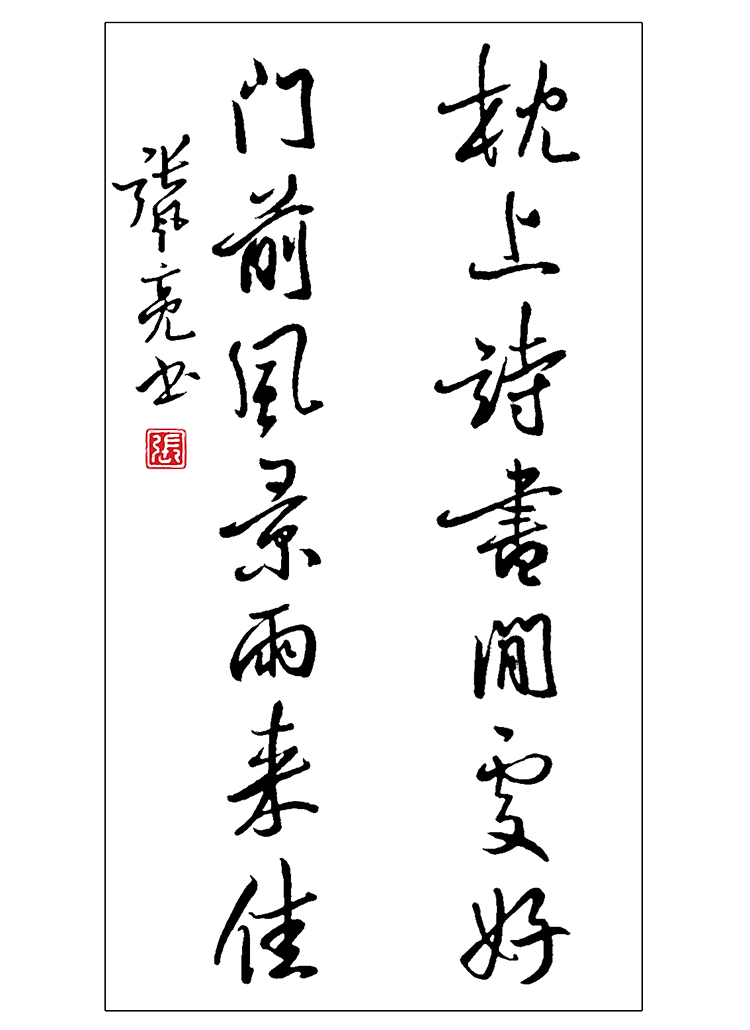 枕上詩書閒處好
门前風景雨来佳
張佩亮书
張